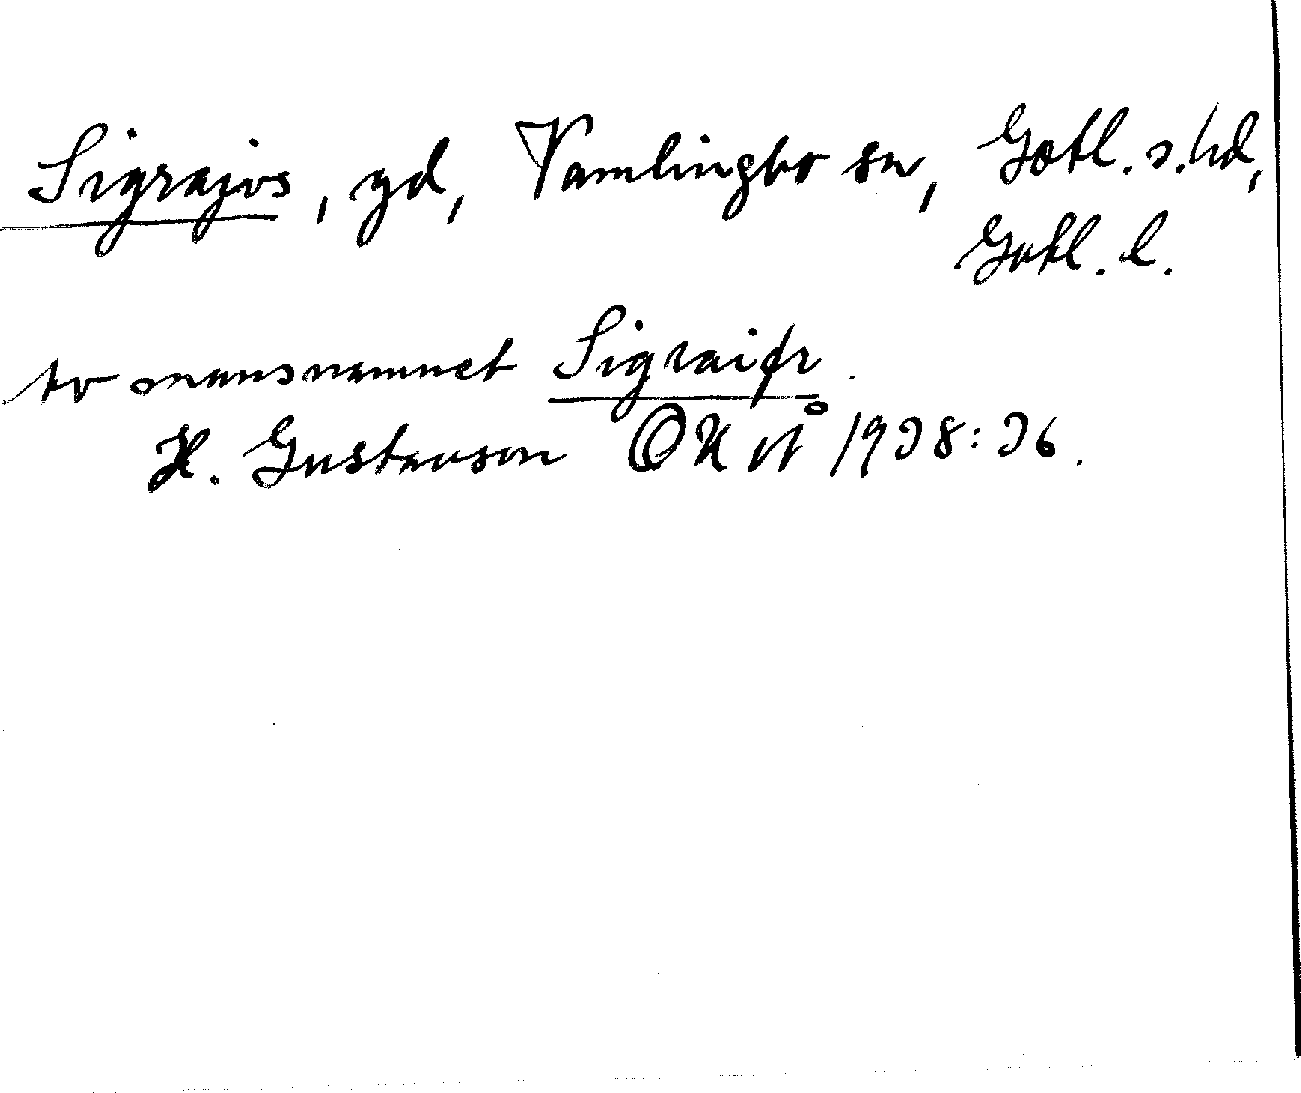 Sigrajvs, gd, Vamlingbo sn, Gotl. s. hd,
Gotl. l.
to mansnamnet Sigraifr.
H. Gustavson OUÅ 1938:36.